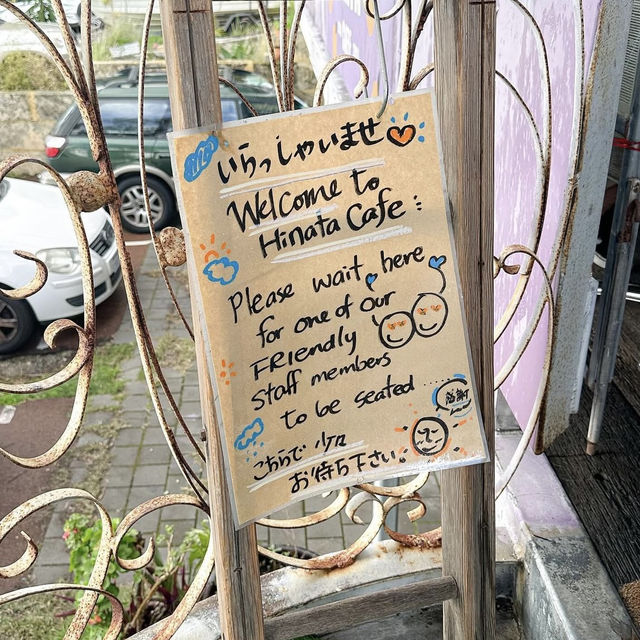 いらっしゃいませ
Welcome to
Hinata Cafe
Please wait here
for one of our
FRIendly
Staff members
to be seated
こちらで 少々
お待ち下さい。